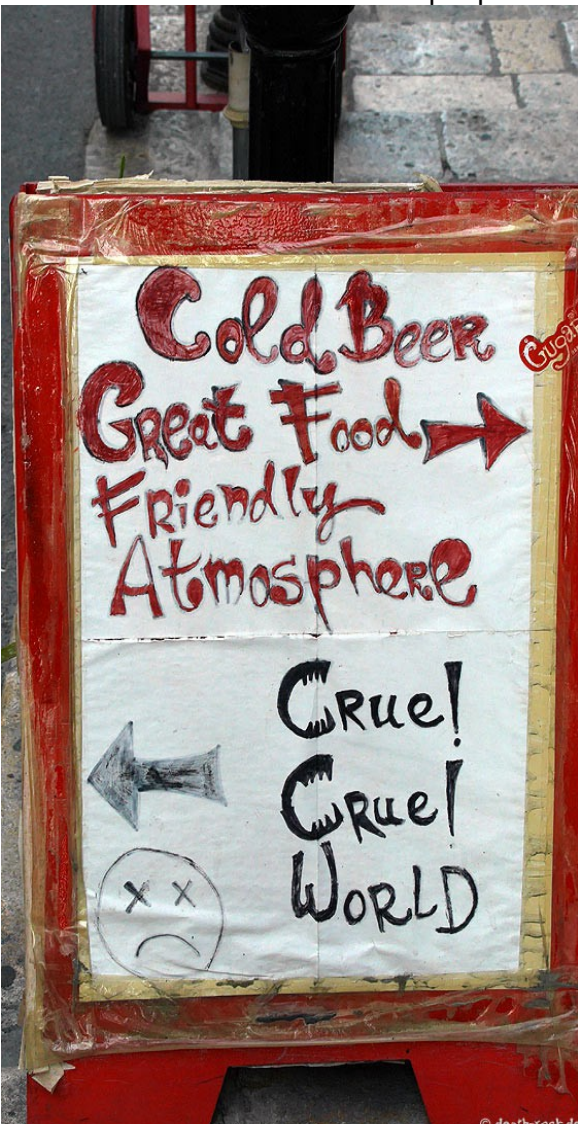 Cold Beer
Great Food
Friendly
Atmosphere
Cruel
Cruel
World